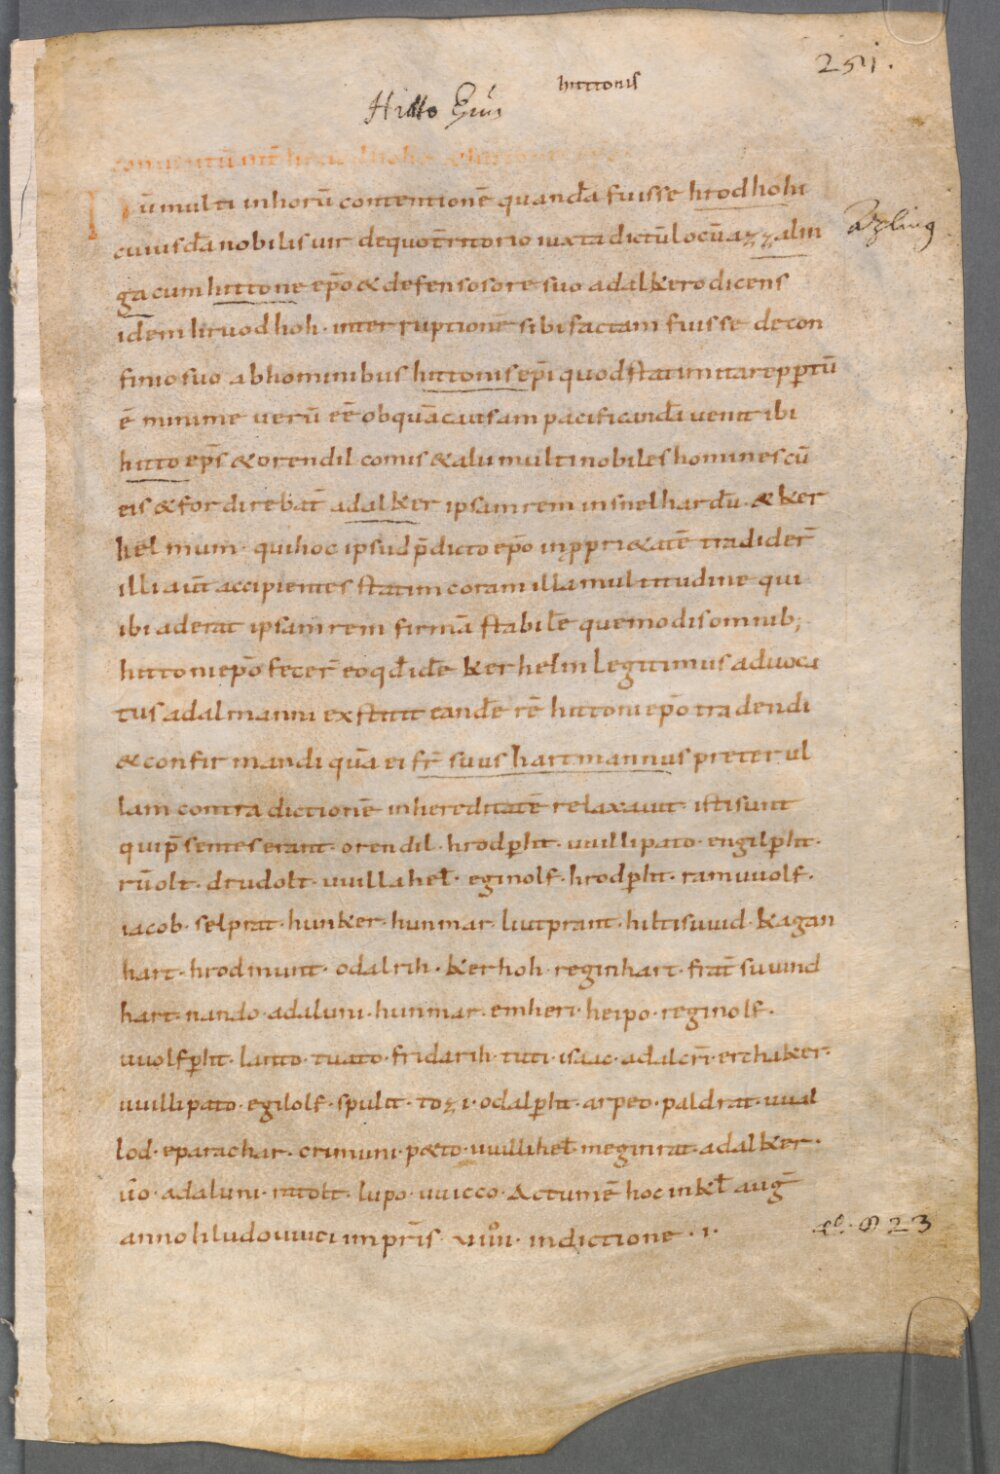 251.
hittonis
Hitto Epūs
Dū multi inhorū contentionē quandā fuisse hrodhohi
cuiusdā nobilis uir dequo tritorio iuxta dictū locū azzalin
Azling
ga cum hittone epō & defensosore suo adalkero dicens
idem hruodhoh · interruptionē sibi factam fuisse de con
finio suo ab hominibus hittonis epī quod statim ita reppertū
ē minime uerū eē ob quā causam pacificandā uenit ibi
hitto eps̄ & orendil comis & alii multi nobiles homines cū
eis & fordirebāt adalker ipsam rem in snelhardū · & ker
helmum · qui hoc ipsud p̄dicto epō in ꝓpri&atē tradider̄
illi aut̄ accipientes statim coram illa multitudine qui
ibi aderat ipsam rem firmā stabilē quemodis omnib;
hittoni epō fecer̄ eo qd̄ idē kerhelm legitimus aduoca
tus adalmanni exstitit eandē rē hittoni epō tradendi
& confirmandi quā ei fr̄ suus hartmannus preter ul
lam contradictionē in hereditatē relaxauit · isti sunt
qui p̄sentes erant · orendil · hrodꝑht · uuillipato · engilꝑht ·
rūolt · drudolt · uuillahel̄ · eginolf · hrodꝑht · ramuuolf ·
iacob · selprat · hunker · hunmar · liutprant · hiltisuuid · kagan
hart · hrodmunt · odalrih · kerhoh · reginhart · frat̄ suuind
hart · nando · adaluni · hunmar · emheri · heipo · reginolf ·
uuolfꝑht · lanto · tuato · fridarih · tuti · isaac · adalcrī · erchaker ·
uuillipato · egilolf · spulit · tozi · odalꝑht · arpeo · paldrat · uual
lod · eparachar · crimuni · p&to · uuillihel̄ · meginrat · adalker ·
ūo · adaluni · ratolt · lupo · uuicco · Actum ē hoc in kl̄ auḡ
anno hludouuici impr̄is · uiiii · indictione · i ·
823